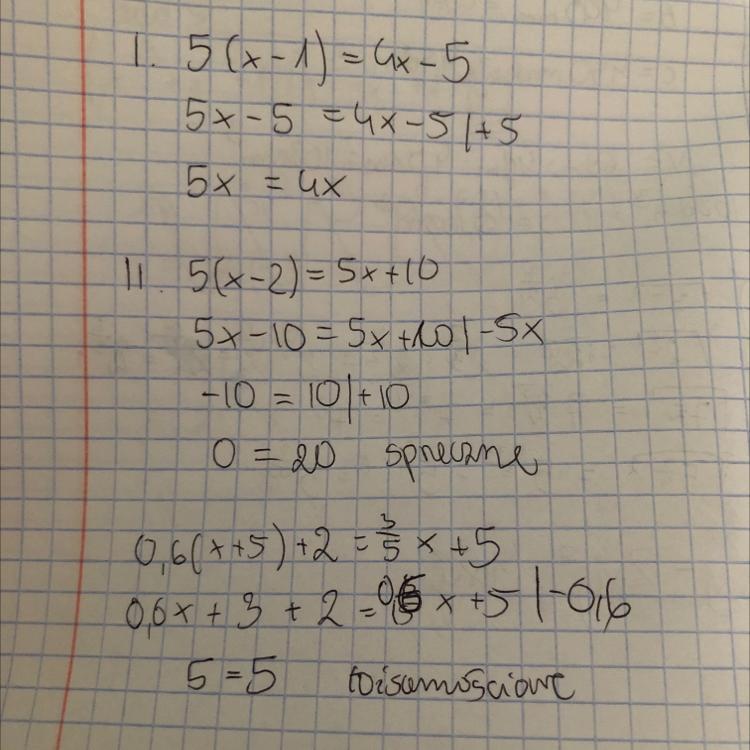 I. 5(x-1)=4x-5
5x-5 =4x-5|+5
5x =4x
II. 5(x-2)=5x+10
5x-10=5x+10|-5x
-10 = 10|+10
0 = 20 sprzeczne
0,6(x+5)+2=3/5 x+5
0,6x+3+2=0,6x+5|-0,6
5=5 tożsamościowe